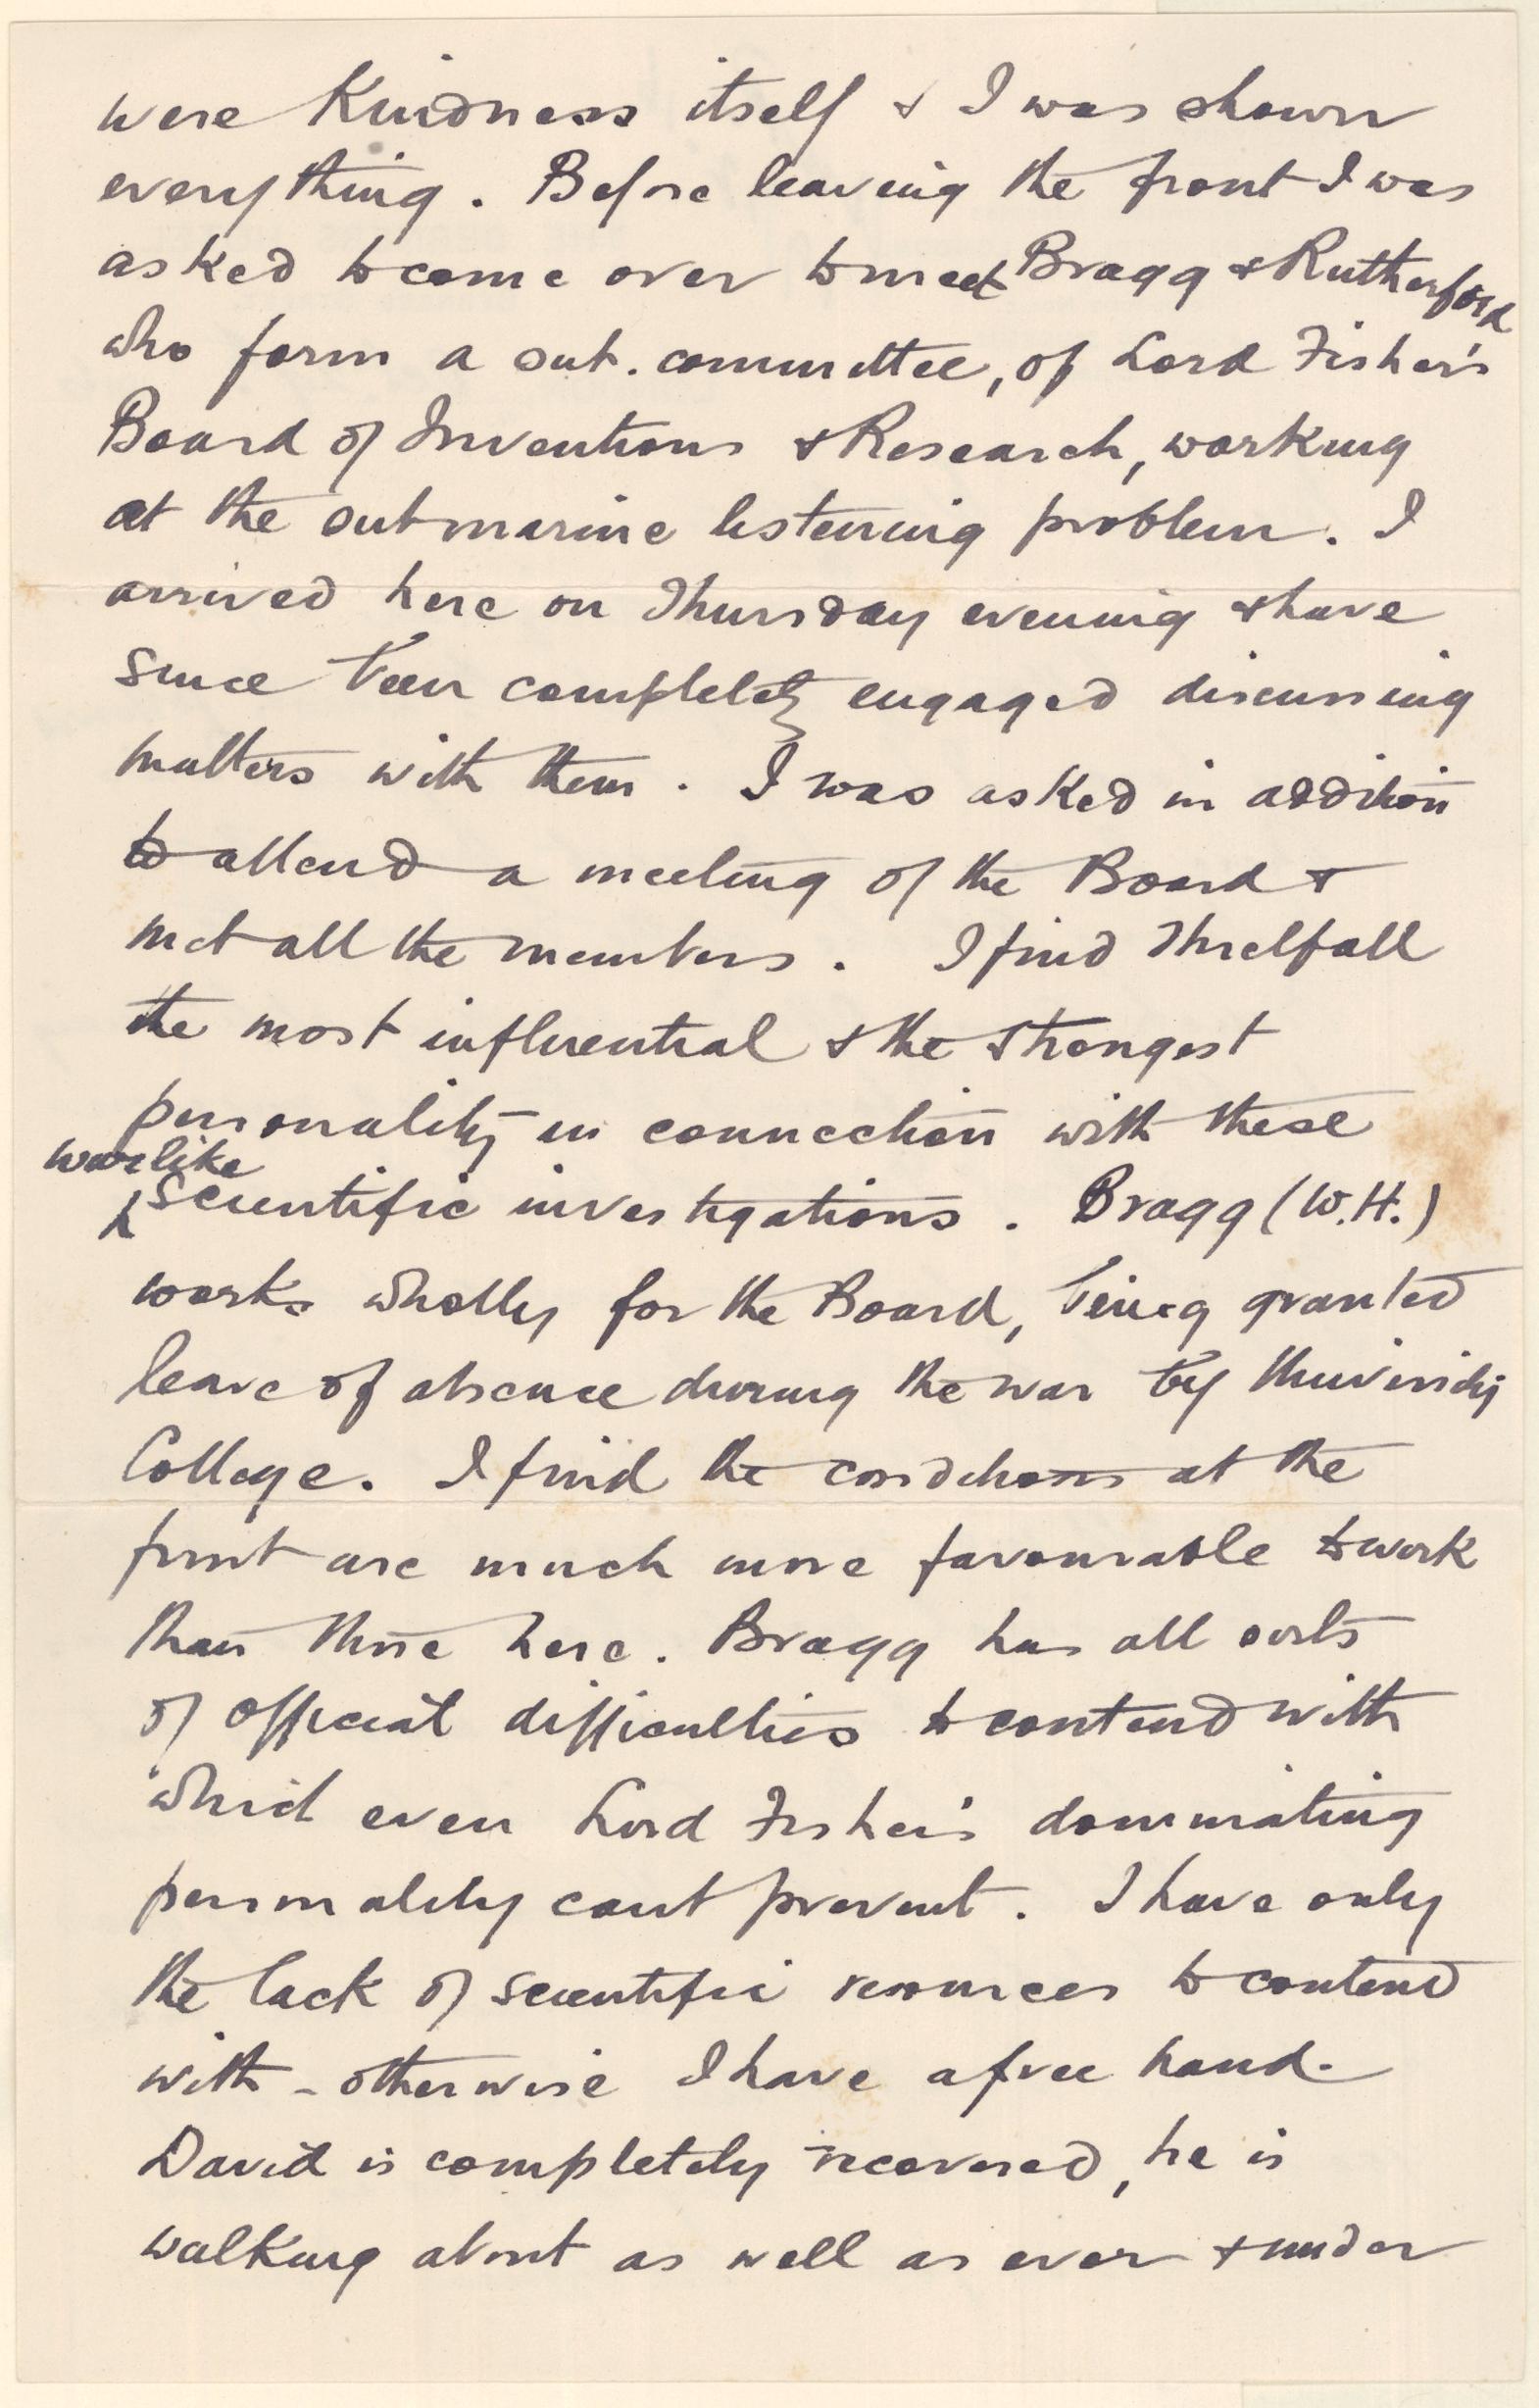 were Kindness itself & I was shown
everything. Before leaving the front I was
asked to come over to meet Bragg & Rutherford
who form a sub. committee, of Lord Fisher's
Board of Inventions & Research, working
at the submarine listening problem. I
arrived here on Thursday evening & have
since been completely engaged discussing
matters with them. I was asked in addition
to attend a meeting of the Board &
met all the members. I find Threlfall
the most influential & the strongest
personality in connection with these
warlike
scientific investigations. Bragg (W.H.)
works wholly for the Board, being granted
leave of absence during the war by
College. I find the conditions at the
front are much more favourable to work
than those here. Bragg has all sorts
of official difficulties to contend with
which even Lord Fisher's dominating
personality cant prevent. I have only
the lack of scientific resources to contend
with - otherwise I have a free hand.
David is completely recovered, he is
walking about as well as ever & under